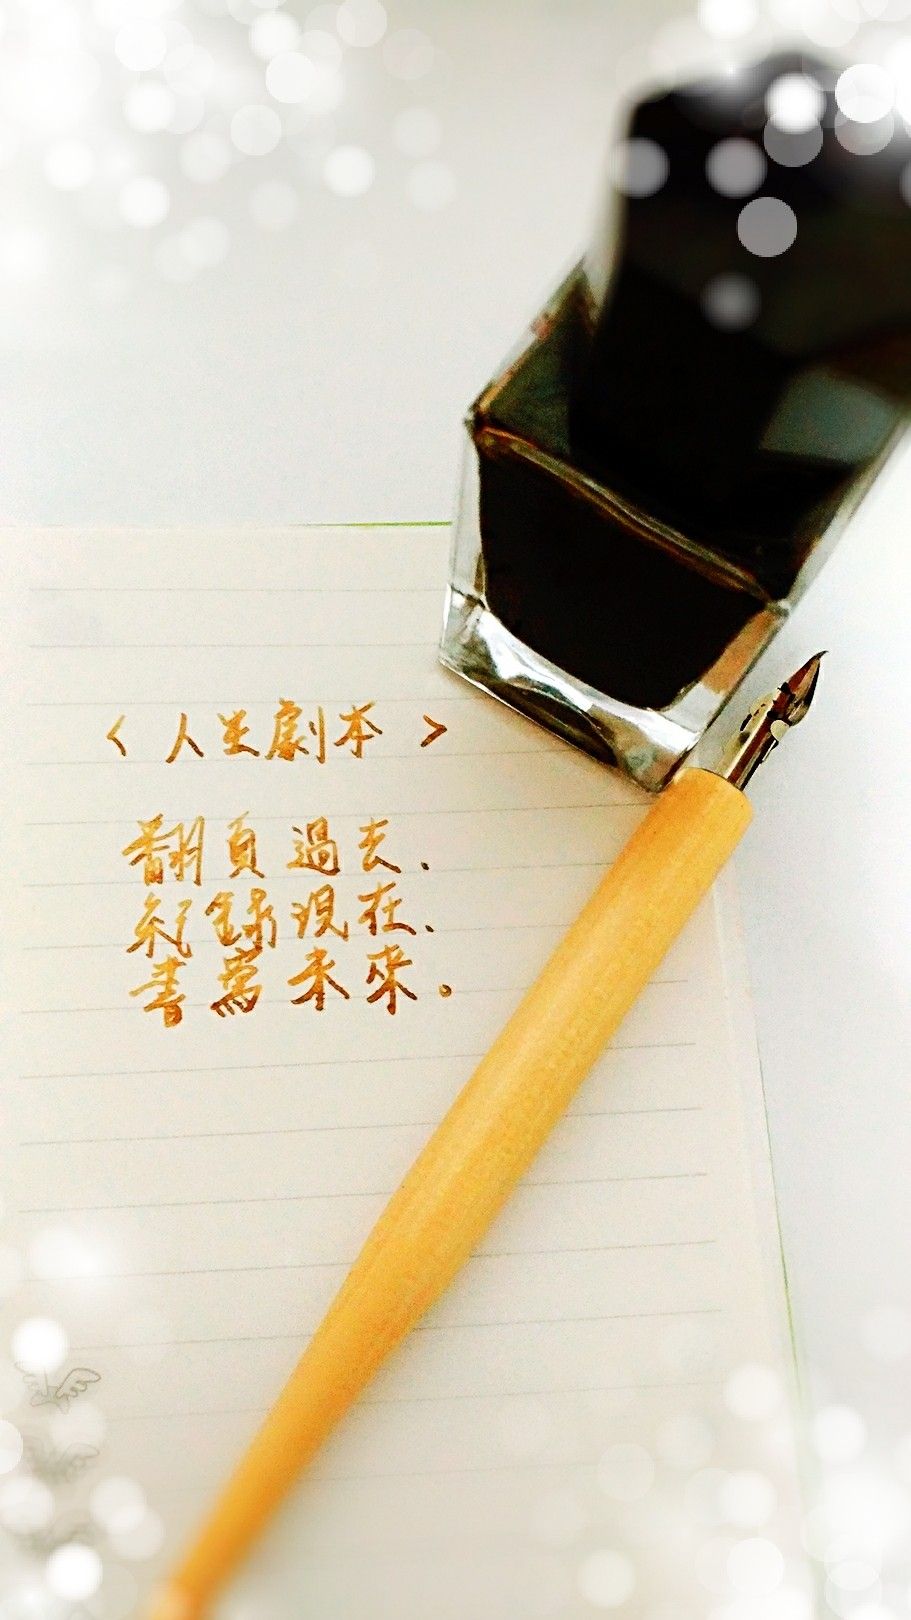 〈人生劇本〉
翻頁過去.
紀錄現在.
書寫未來。